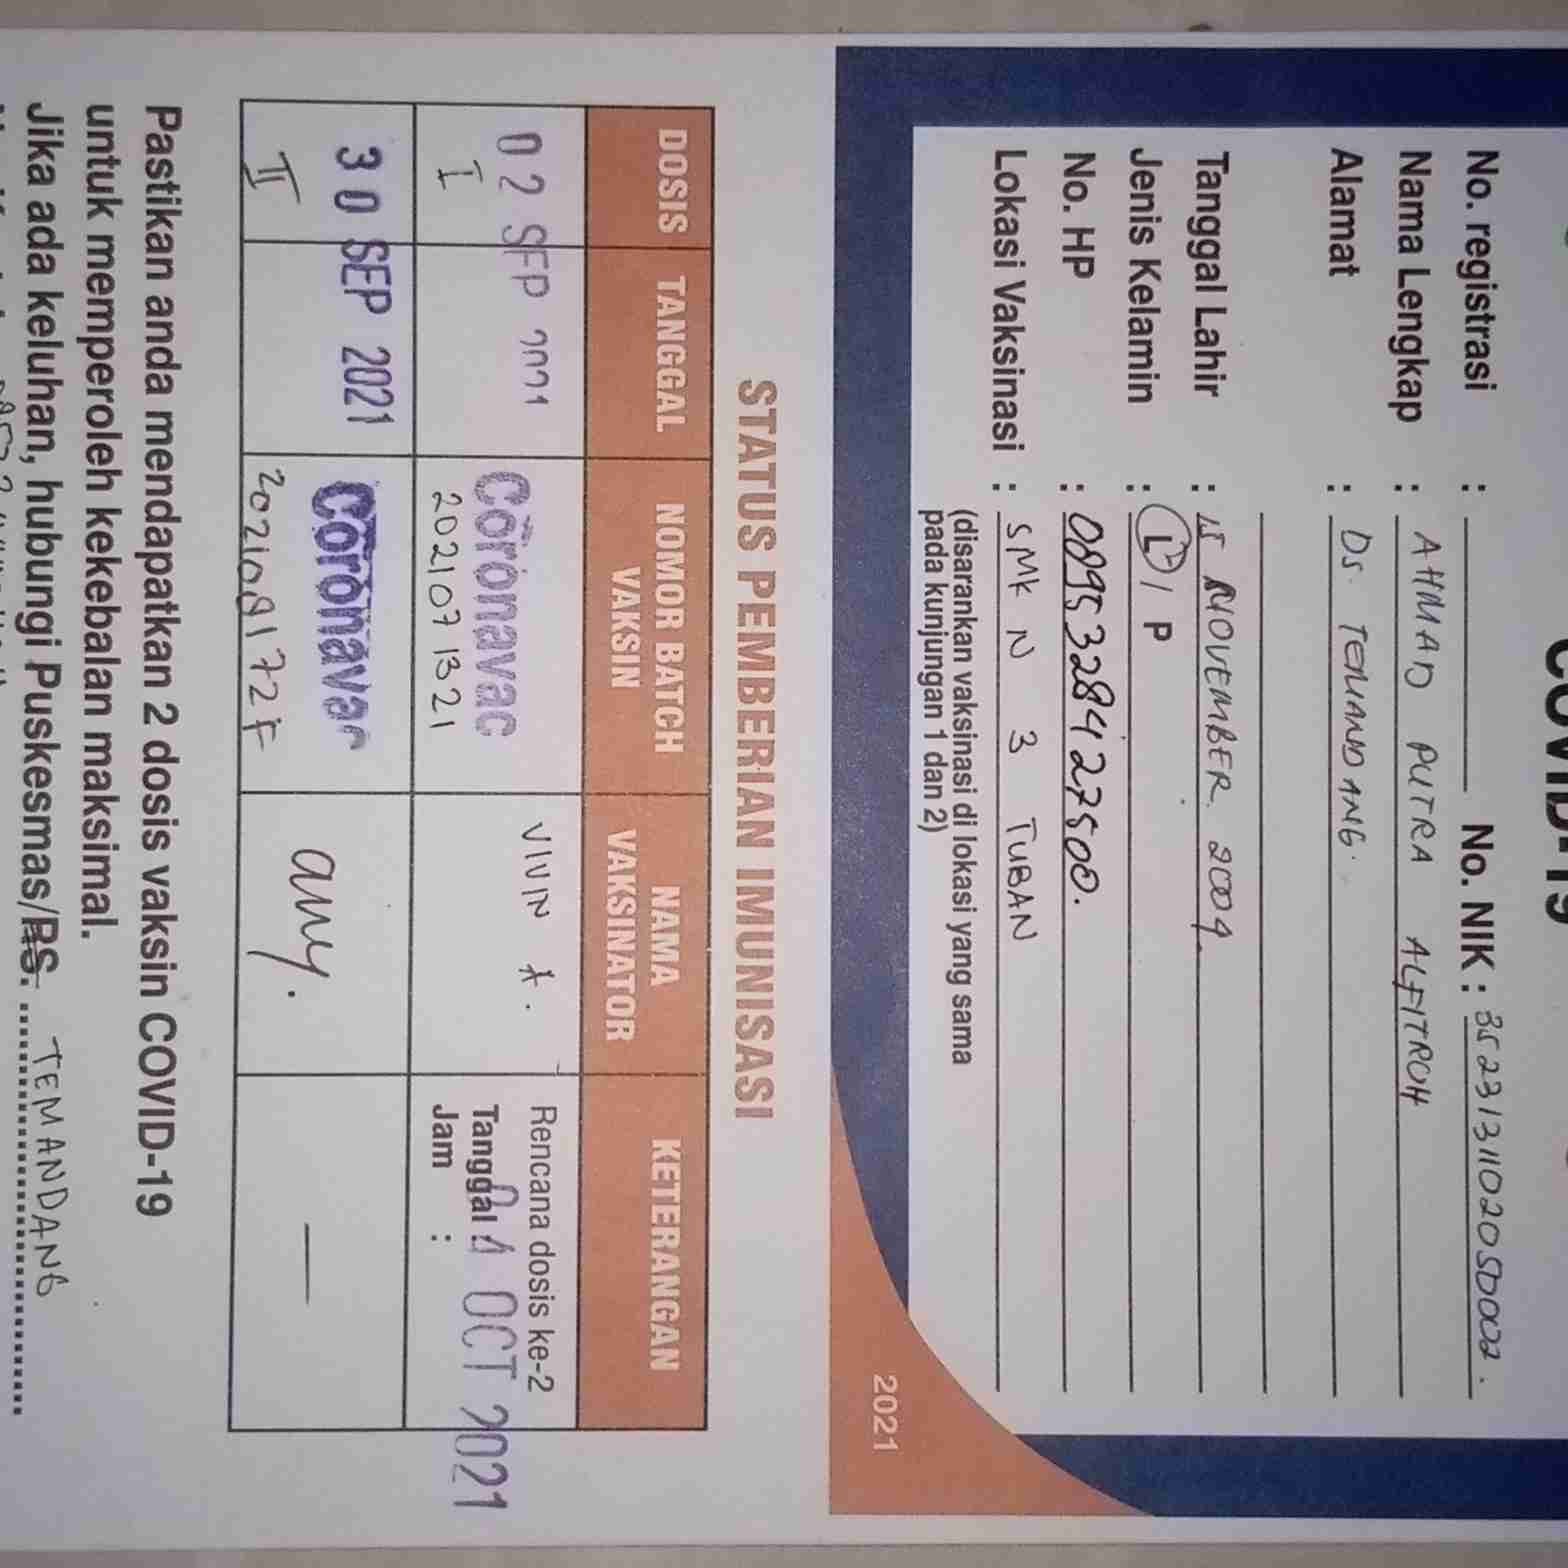 COVID-19
No. registrasi : No. NIK : 3523131102050002.
Nama Lengkap : AHMAD PUTRA ALFITROH
Alamat : Ds. TEMANDANG.
Tanggal Lahir : NOVEMBER 2004
Jenis Kelamin : L / P
No. HP : 0895328427500.
Lokasi Vaksinasi : SMK N 3 TUBAN
(disarankan vaksinasi di lokasi yang sama
pada kunjungan 1 dan 2)
2021
STATUS PEMBERIAN IMUNISASI
DOSIS TANGGAL NOMOR BATCH VAKSIN NAMA VAKSINATOR KETERANGAN
02 SEP 2021 Coronavac VIVIN A. Rencana dosis ke-2
I 2021071321 Tanggal : OCT 2021
Jam :
30 SEP 2021 Coronavac any. —
II 202108172F
Pastikan anda mendapatkan 2 dosis vaksin COVID-19
untuk memperoleh kekebalan maksimal.
Jika ada keluhan, hubungi Puskesmas/RS. TEMANDANG